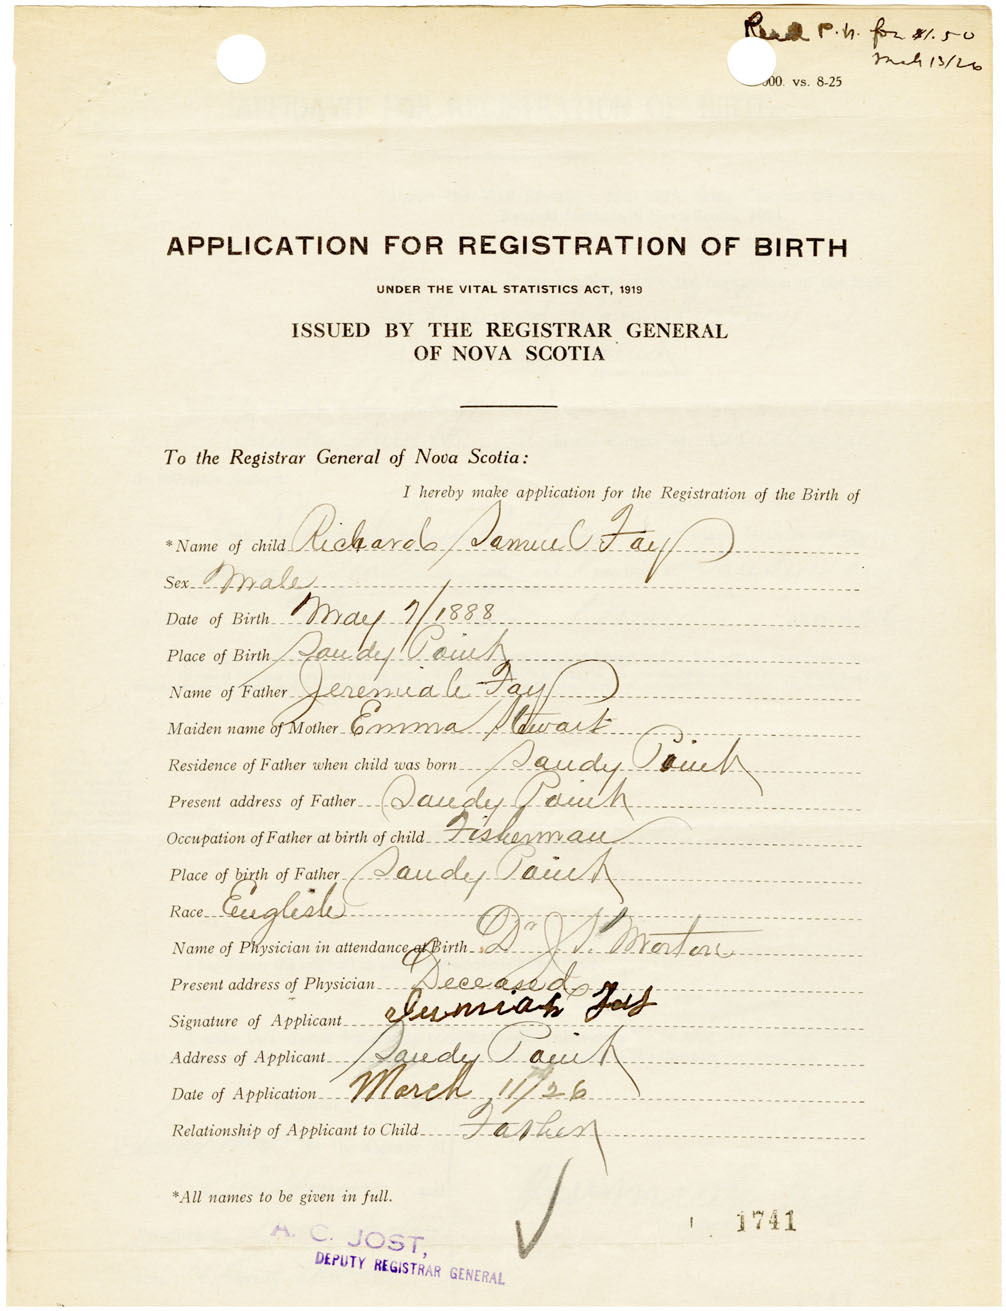 Recd P.N. for $1.50
Mch 13/26
000. vs. 8-25
APPLICATION FOR REGISTRATION OF BIRTH
UNDER THE VITAL STATISTICS ACT, 1919
ISSUED BY THE REGISTRAR GENERAL
OF NOVA SCOTIA
To the Registrar General of Nova Scotia:
I hereby make application for the Registration of the Birth of
*Name of child Richard Samuel Fay
Sex Male
Date of Birth May 7/1888
Place of Birth Sandy Point
Name of Father Jeremiah Fay
Maiden name of Mother Emma Stewart
Residence of Father when child was born Sandy Point
Present address of Father Sandy Point
Occupation of Father at birth of child Fisherman
Place of birth of Father Sandy Point
Race English
Name of Physician in attendance at Birth Dr J. Morton
Present address of Physician Deceased
Signature of Applicant Jermiah Fay
Address of Applicant Sandy Point
Date of Application March 11/26
Relationship of Applicant to Child Father
*All names to be given in full.
1741
A. C. JOST,
DEPUTY REGISTRAR GENERAL